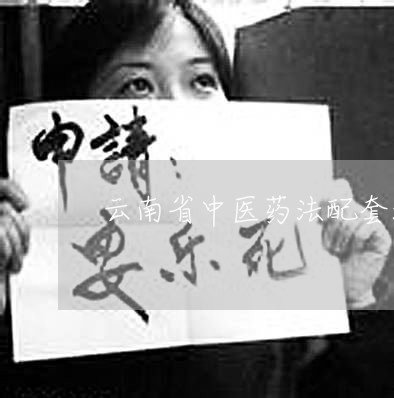 申請：
云南省中医药法配套
安乐死